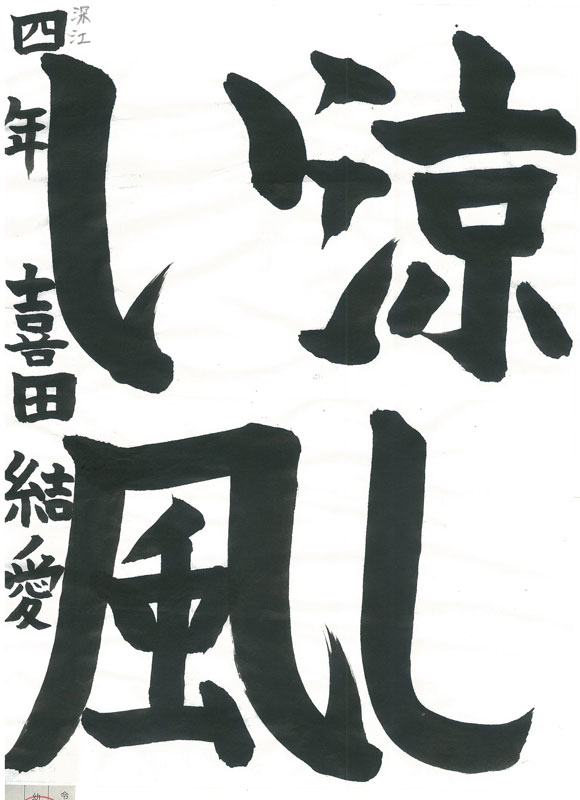 涼し
い風
四年 喜田 結愛
深江